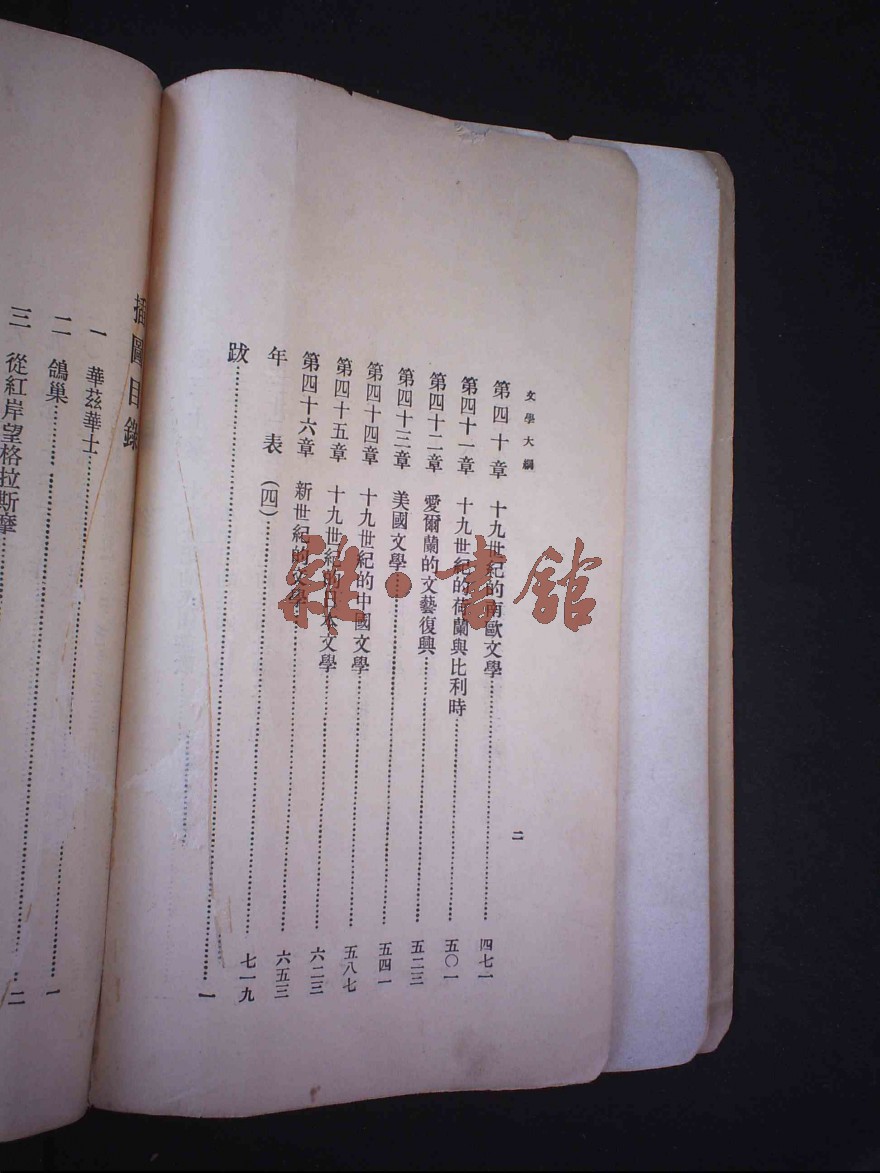 文學大綱
第四十章 十九世紀的南歐文學……四七一
第四十一章 十九世紀的荷蘭與比利時……五〇一
第四十二章 愛爾蘭的文藝復興……五二三
第四十三章 美國文學……五四一
第四十四章 十九世紀的中國文學……五八七
第四十五章 十九世紀的日本文學……六二三
第四十六章 新世紀的文學……六五三
年表(四)……七一九
跋……一
二
插圖目錄
一 華茲華士……一
二 鴿巢……一
三 從紅岸望格拉斯摩……二
雜·書館